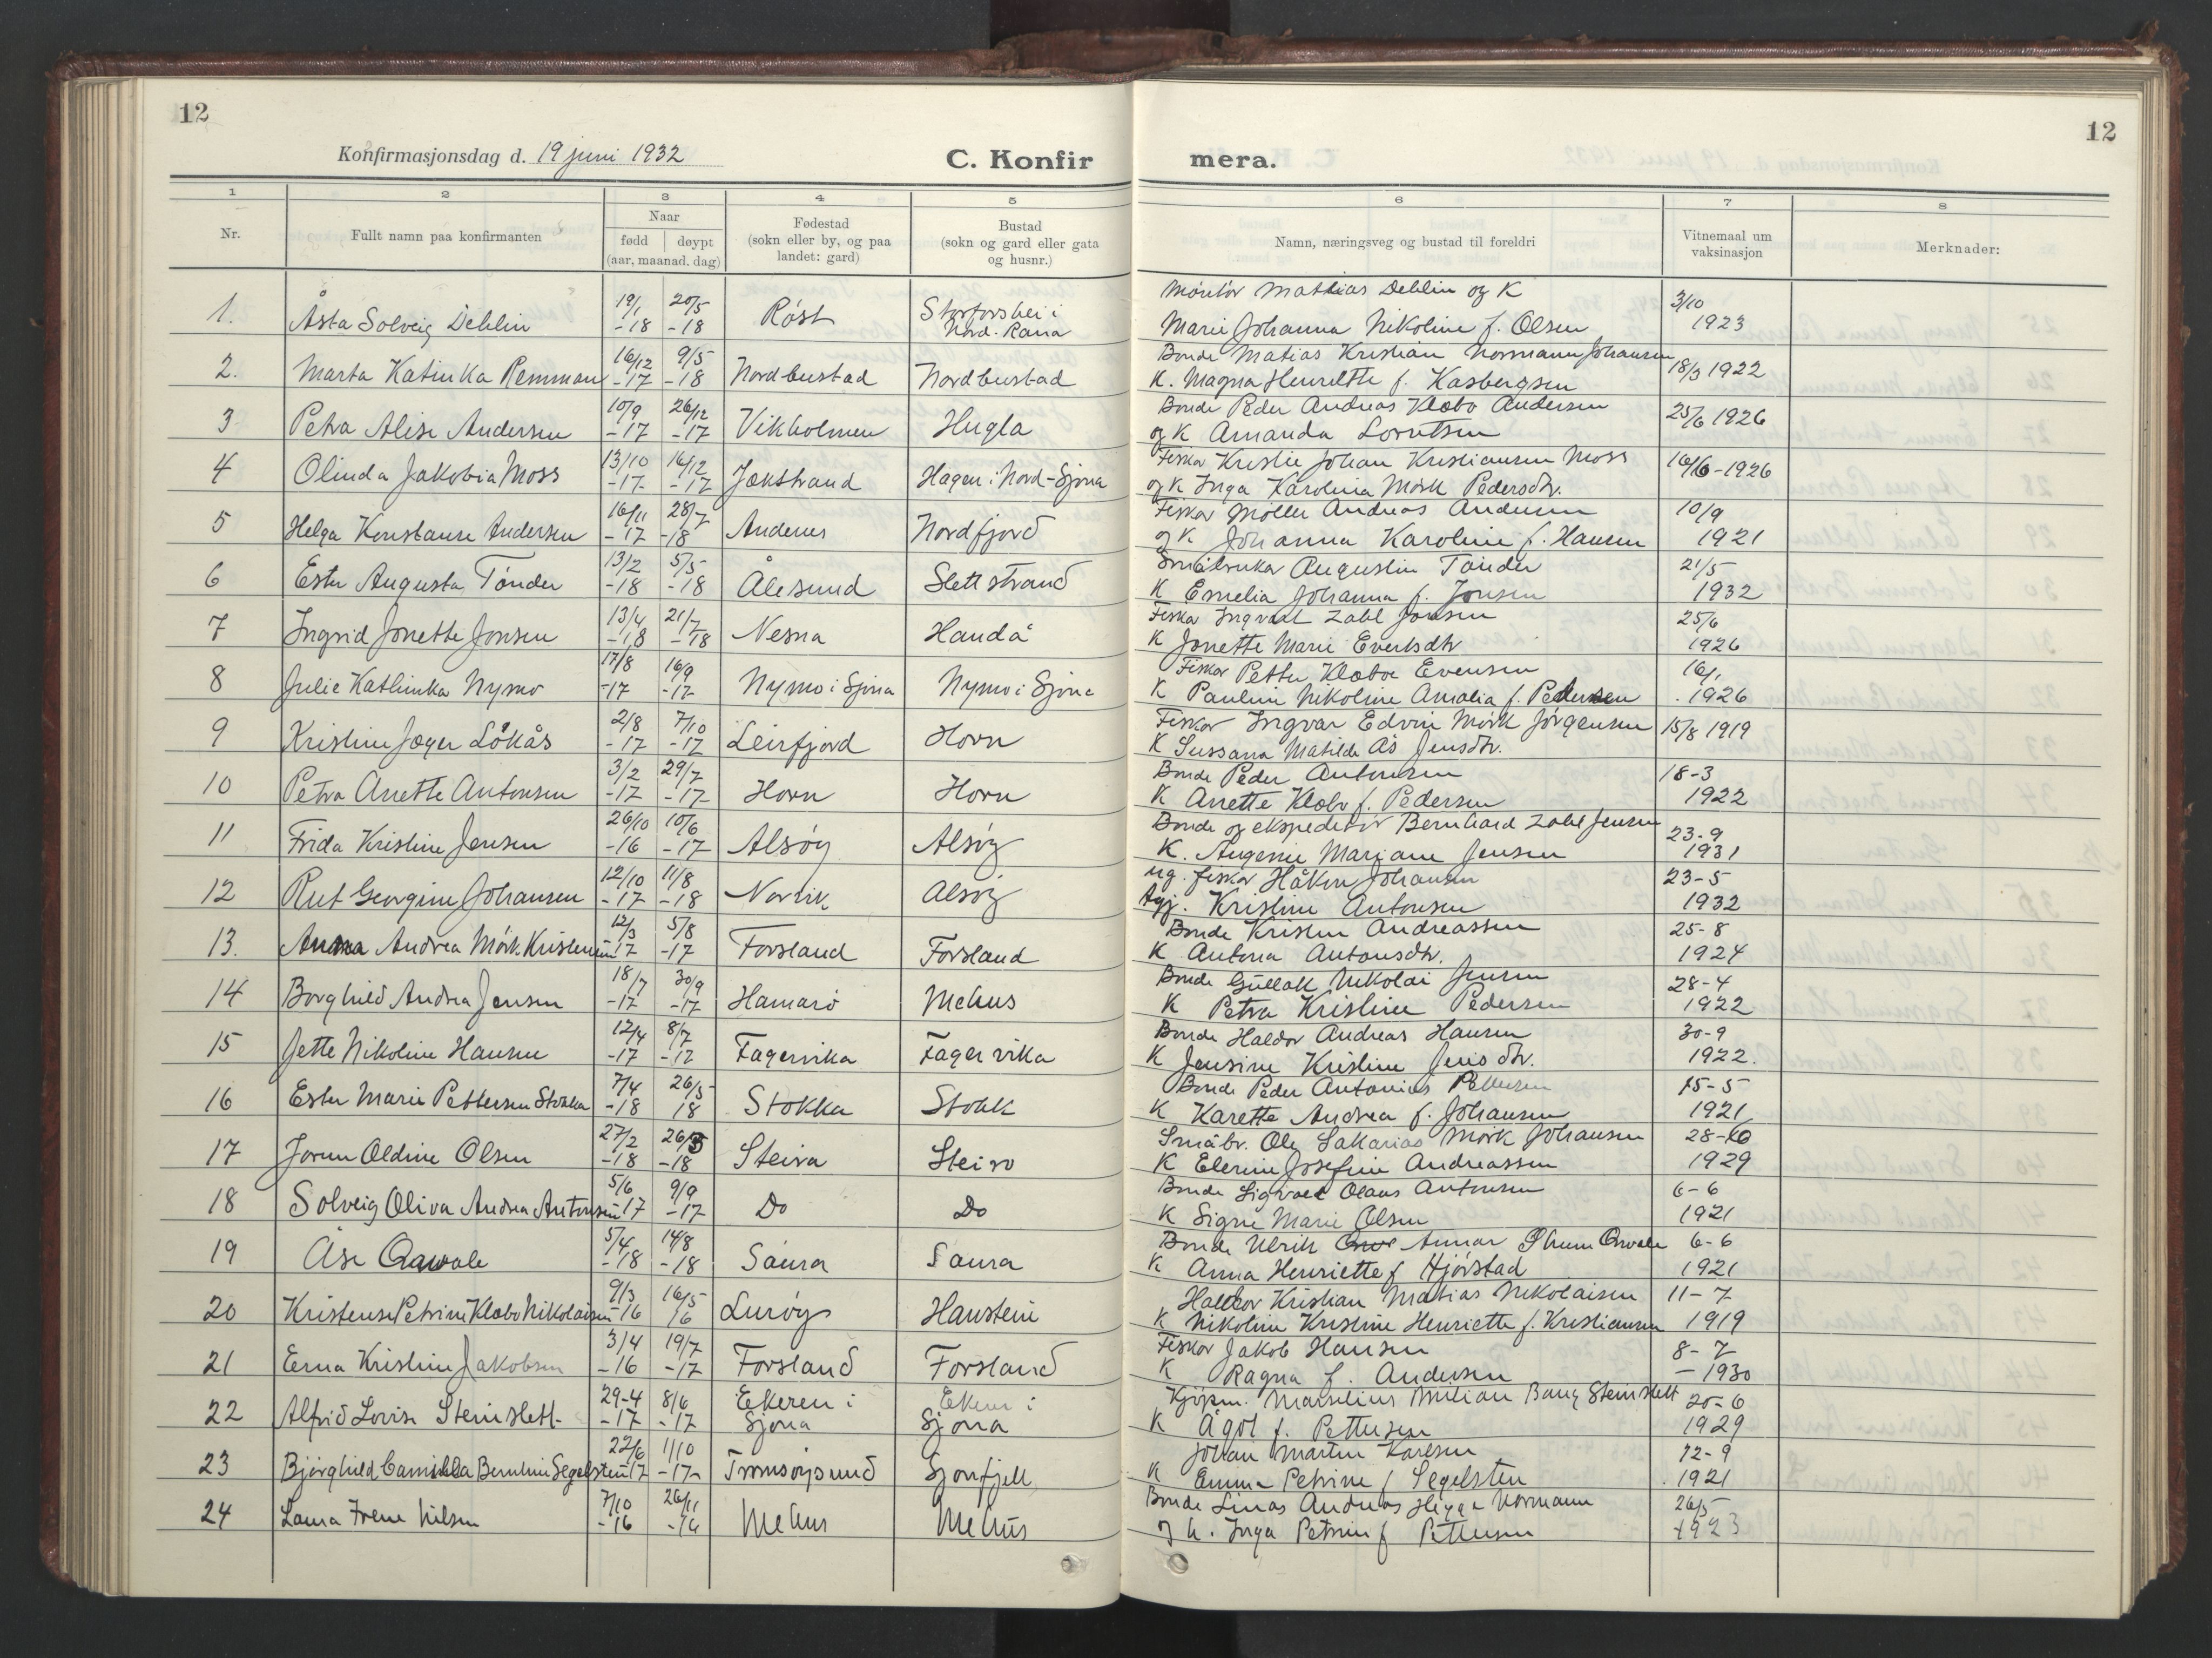 12
12
Konfirmasjonsdag d. 19 juni 1932
C. Konfir mera.
1 2 3 4 5 6 7 8
Nr.
Fullt namn paa konfirmanten
Naar
fødd døypt
(aar, maanad. dag)
Fødestad
(sokn eller by, og paa
landet: gard)
Bustad
(sokn og gard eller gata
og husnr.)
Namn, næringsveg og bustad til foreldri
Vitnemaal um
vaksinasjon
Merknader:
19/1 20/5 Storforshei i Montør Mathias Dehlin og K 3/10
1. Åsta Solveig Dehlin -18 -18 Røst Nord-Rana Marie Johanna Nikoline f. Olsen 1923
16/12 9/5 Bonde Matias Kristian Normann Johansen
2. Marta Katinka Remman -17 -18 Nordbustad Nordbustad K. Magna Henrette f. Kasbergsen 18/3 1922
10/9 26/12 Bonde Peder Andreas Klæbo Andersen
3 Petra Alise Andersen -17 -17 Vikholmen Hugla og K Amanda Lorntsen 25/6 1926
13/10 16/12 Fisker Kristie Johan Kristiansen Moss
4 Olinda Jakobia Moss -17 -17 Jektstrand Hagen i Nord-Sjona og K Inga Karolina Mørk Pedersdtr. 16/6-1926
16/11 28/7 Fisker Møller Andreas Andersen 10/9
5 Helga Konstanse Andersen -17 -18 Andenes Nordfjord og K Johanna Karoline f. Hansen 1921
13/2 5/5 Småbruker Augustin Tønder 21/5
6 Ester Augusta Tønder -18 -18 Ålesund Slettstrand K Emelia Johanna f. Jonsen 1932
13/4 21/7 Fisker Ingvald Zahl Jonsen 25/6
7 Ingrid Jonette Jonsen -18 -18 Nesna Handå K Jonette Marie Evertsdtr 1926
17/8 16/9 Fisker Petter Klæboe Evensen 16/1
8 Julie Kathinka Nymo -17 -17 Nymo i Sjona Nymo i Sjona K Pauline Nikoline Amalia f. Pedersen 1926
2/8 7/10 Fisker Ingvar Edvin Mørk Jørgensen
9 Kristine Jæger Løkås -17 -17 Leirfjord Horn K Sussana Matilde Ås Jensdtr. 15/8 1919
3/2 29/7 Bonde Peder Antonsen 18-3
10 Petra Anette Antonsen -17 -17 Horn Horn K Anette Klæbo f. Pedersen 1922
26/10 10/6 Bonde og ekspeditør Bernhard Zahl Jensen 23-9
11 Frida Kristine Jensen -16 -17 Alsøy Alsøy K. Augenie Marjane Jensen 1931
12/10 11/8 ug. fisker Håkon Johansen 23-5
12 Rut Georgine Johansen -17 -18 Narvik Alsøy Kristine Antonsen 1932
12/3 5/8 Bonde Kristen Andreassen 25-8
13. Anna Andrea Mørk Kristensen -17 -17 Forsland Forsland K Antona Antonsdtr. 1924
18/7 30/9 Bonde Gullak Nikolai Jensen 28-4
14 Borghild Andrea Jensen -17 -17 Hamarö Mehus K Petra Kristine Pedersen 1922
12/4 8/7 Bonde Haldor Andreas Hansen 30-9
15 Jette Nikoline Hansen -17 -17 Fagervika Fagervika K Jensine Kristine Jensdtr. 1922.
7/4 26/5 Bonde Peder Antonius Pettersen 15-5
16 Ester Marie Pettersen Stokka -18 18 Stokka Stokk K Karette Andrea f. Johansen 1921
27/2 26/5 Småbr. Ole Sakarias Mørk Johansen 28-10
17 Jorun Oldine Olsen -18 -18 Steira Steiro K Elerine Josefine Andreassen 1929
5/6 9/9 Bonde Sigvald Olaus Antonsen 6-6
18 Solveig Oliva Andrea Antonsen -17 -17 Do Do K Signe Marie Olsen 1921
5/4 14/8 Bonde Ulrik Annar 6-6
19 Åse -18 -18 Saura Saura K Anna Henriette f Hjørstad 1921
9/3 16/5 Halldor Kristian Matias Nikolaisen 11-7
20 Kristense Petrine Klæbo Nikolaisen -16 16 Lurøy Haustein K Nikoline Kristine Henriette f. Kristiansen 1919
3/4 19/7 Fisker Jakob Hansen 8-7
21 Erna Kristine Jakobsen -16 -17 Forsland Forsland K Ragna f. Andersen -1930
29-4 8/6 Ekeren i Ekeren i Kjøpm. Marselius Emilian Bang Steinslett 20-6
22 Alfrid Lovise Steinslett -17 -17 Sjona Sjona K Ågot f. Pettersen 1929
22/6 1/10 Johan Martin Karlsen 12-9
23 Bjørghild Camilla Bernhine Segelsten -17 -17 Tromsøysund Sjonfjell K Emma Petrine f Segelsten 1921
7/10 26/11 Bonde Linas Andreas Normann 26/5
24 Laura Irene Nilsen -16 -16 Mehus Mehus og K. Inga Petrine f Pettersen 1923